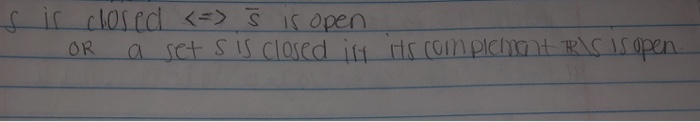 S is closed <=> S̅ is open
OR a set S is closed iff its complement ℝ\S is open